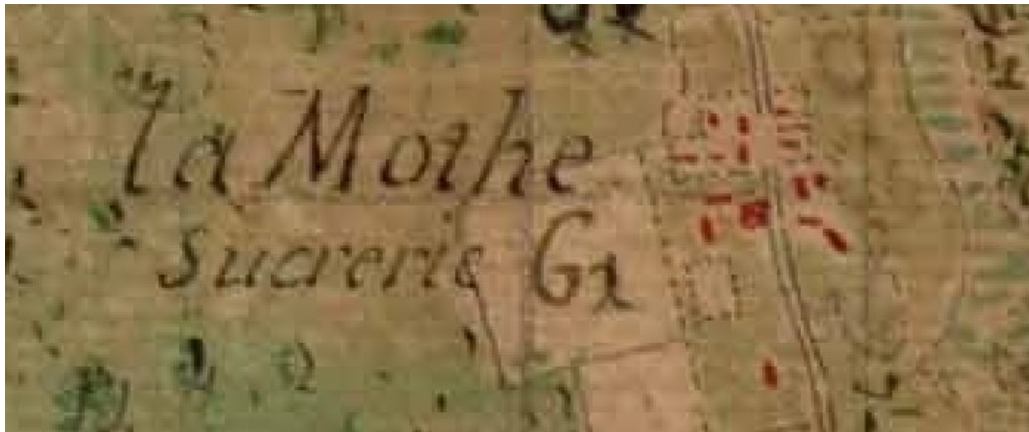 la Mothe
sucrerie G2